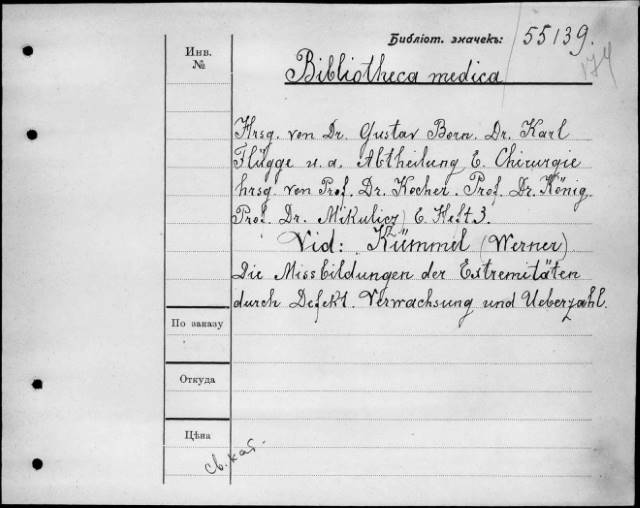 Библіот. значекъ: 55139.
174
Инв.
№
Bibliotheca medica
Hrsg. von Dr. Gustav Born. Dr. Karl
Flügge u. a. Abtheilung E. Chirurgie
hrsg. von Prof. Dr. Kocher. Prof. Dr. König.
Prof. Dr. Mikulicz) E. Heft 3.
Vid: Kümmel (Werner)
Die Missbildungen der Extremitäten
durch Defekt. Verwachsung und Ueberzahl.
По заказу
Откуда
Цѣна
св. кат.